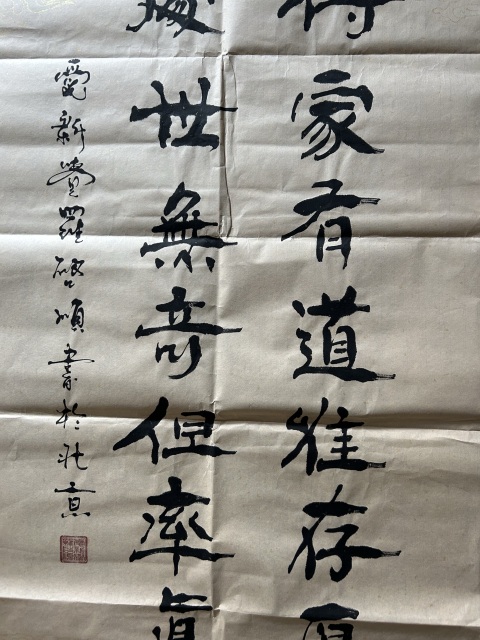 持家有道惟存厚
處世無奇但率真
愛新覺羅啓順書於北京